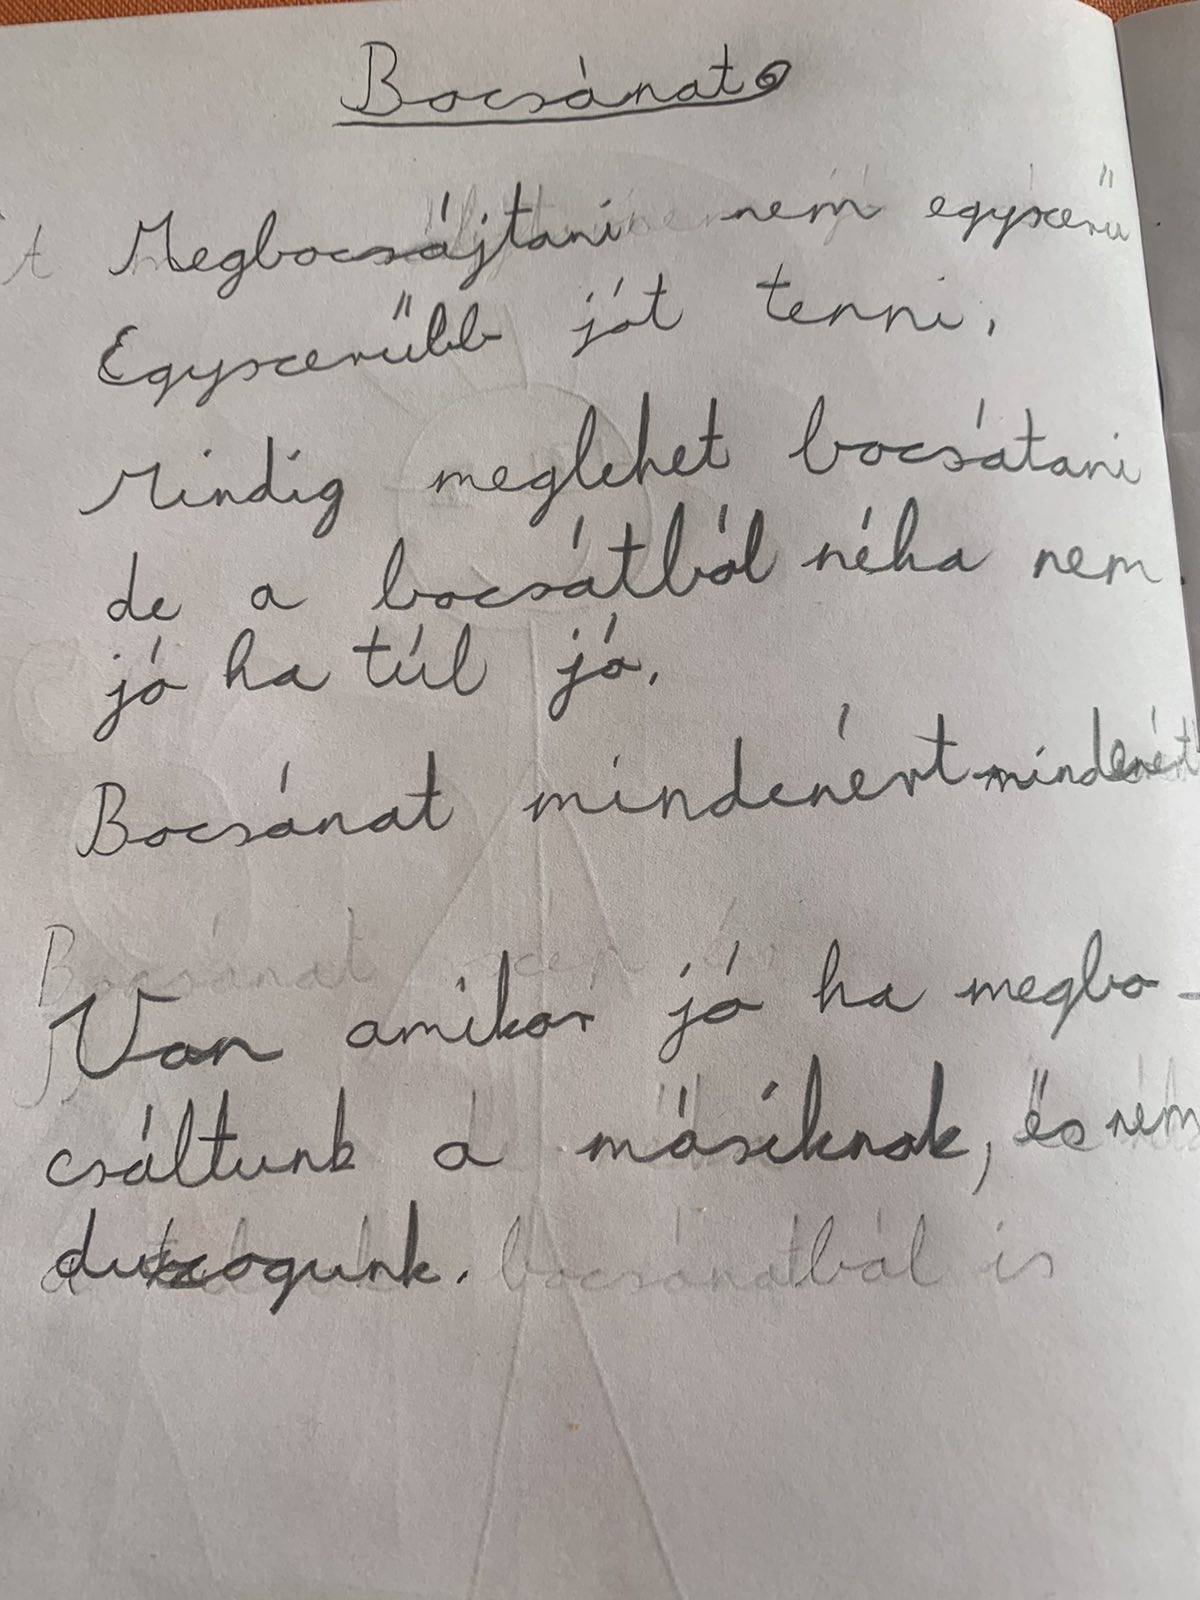 Bocsánat
Megbocsájtani nem egyszerű
Egyszerűbb jót tenni.
Mindig meglehet bocsátani
de a bocsátból néha nem
jó ha túl jó.
Bocsánat mindenért mindenért
Bocsánat
Van amikor jó ha megbo-
csáltunk a másiknak, és nem
duzogunk. bocsánatból is